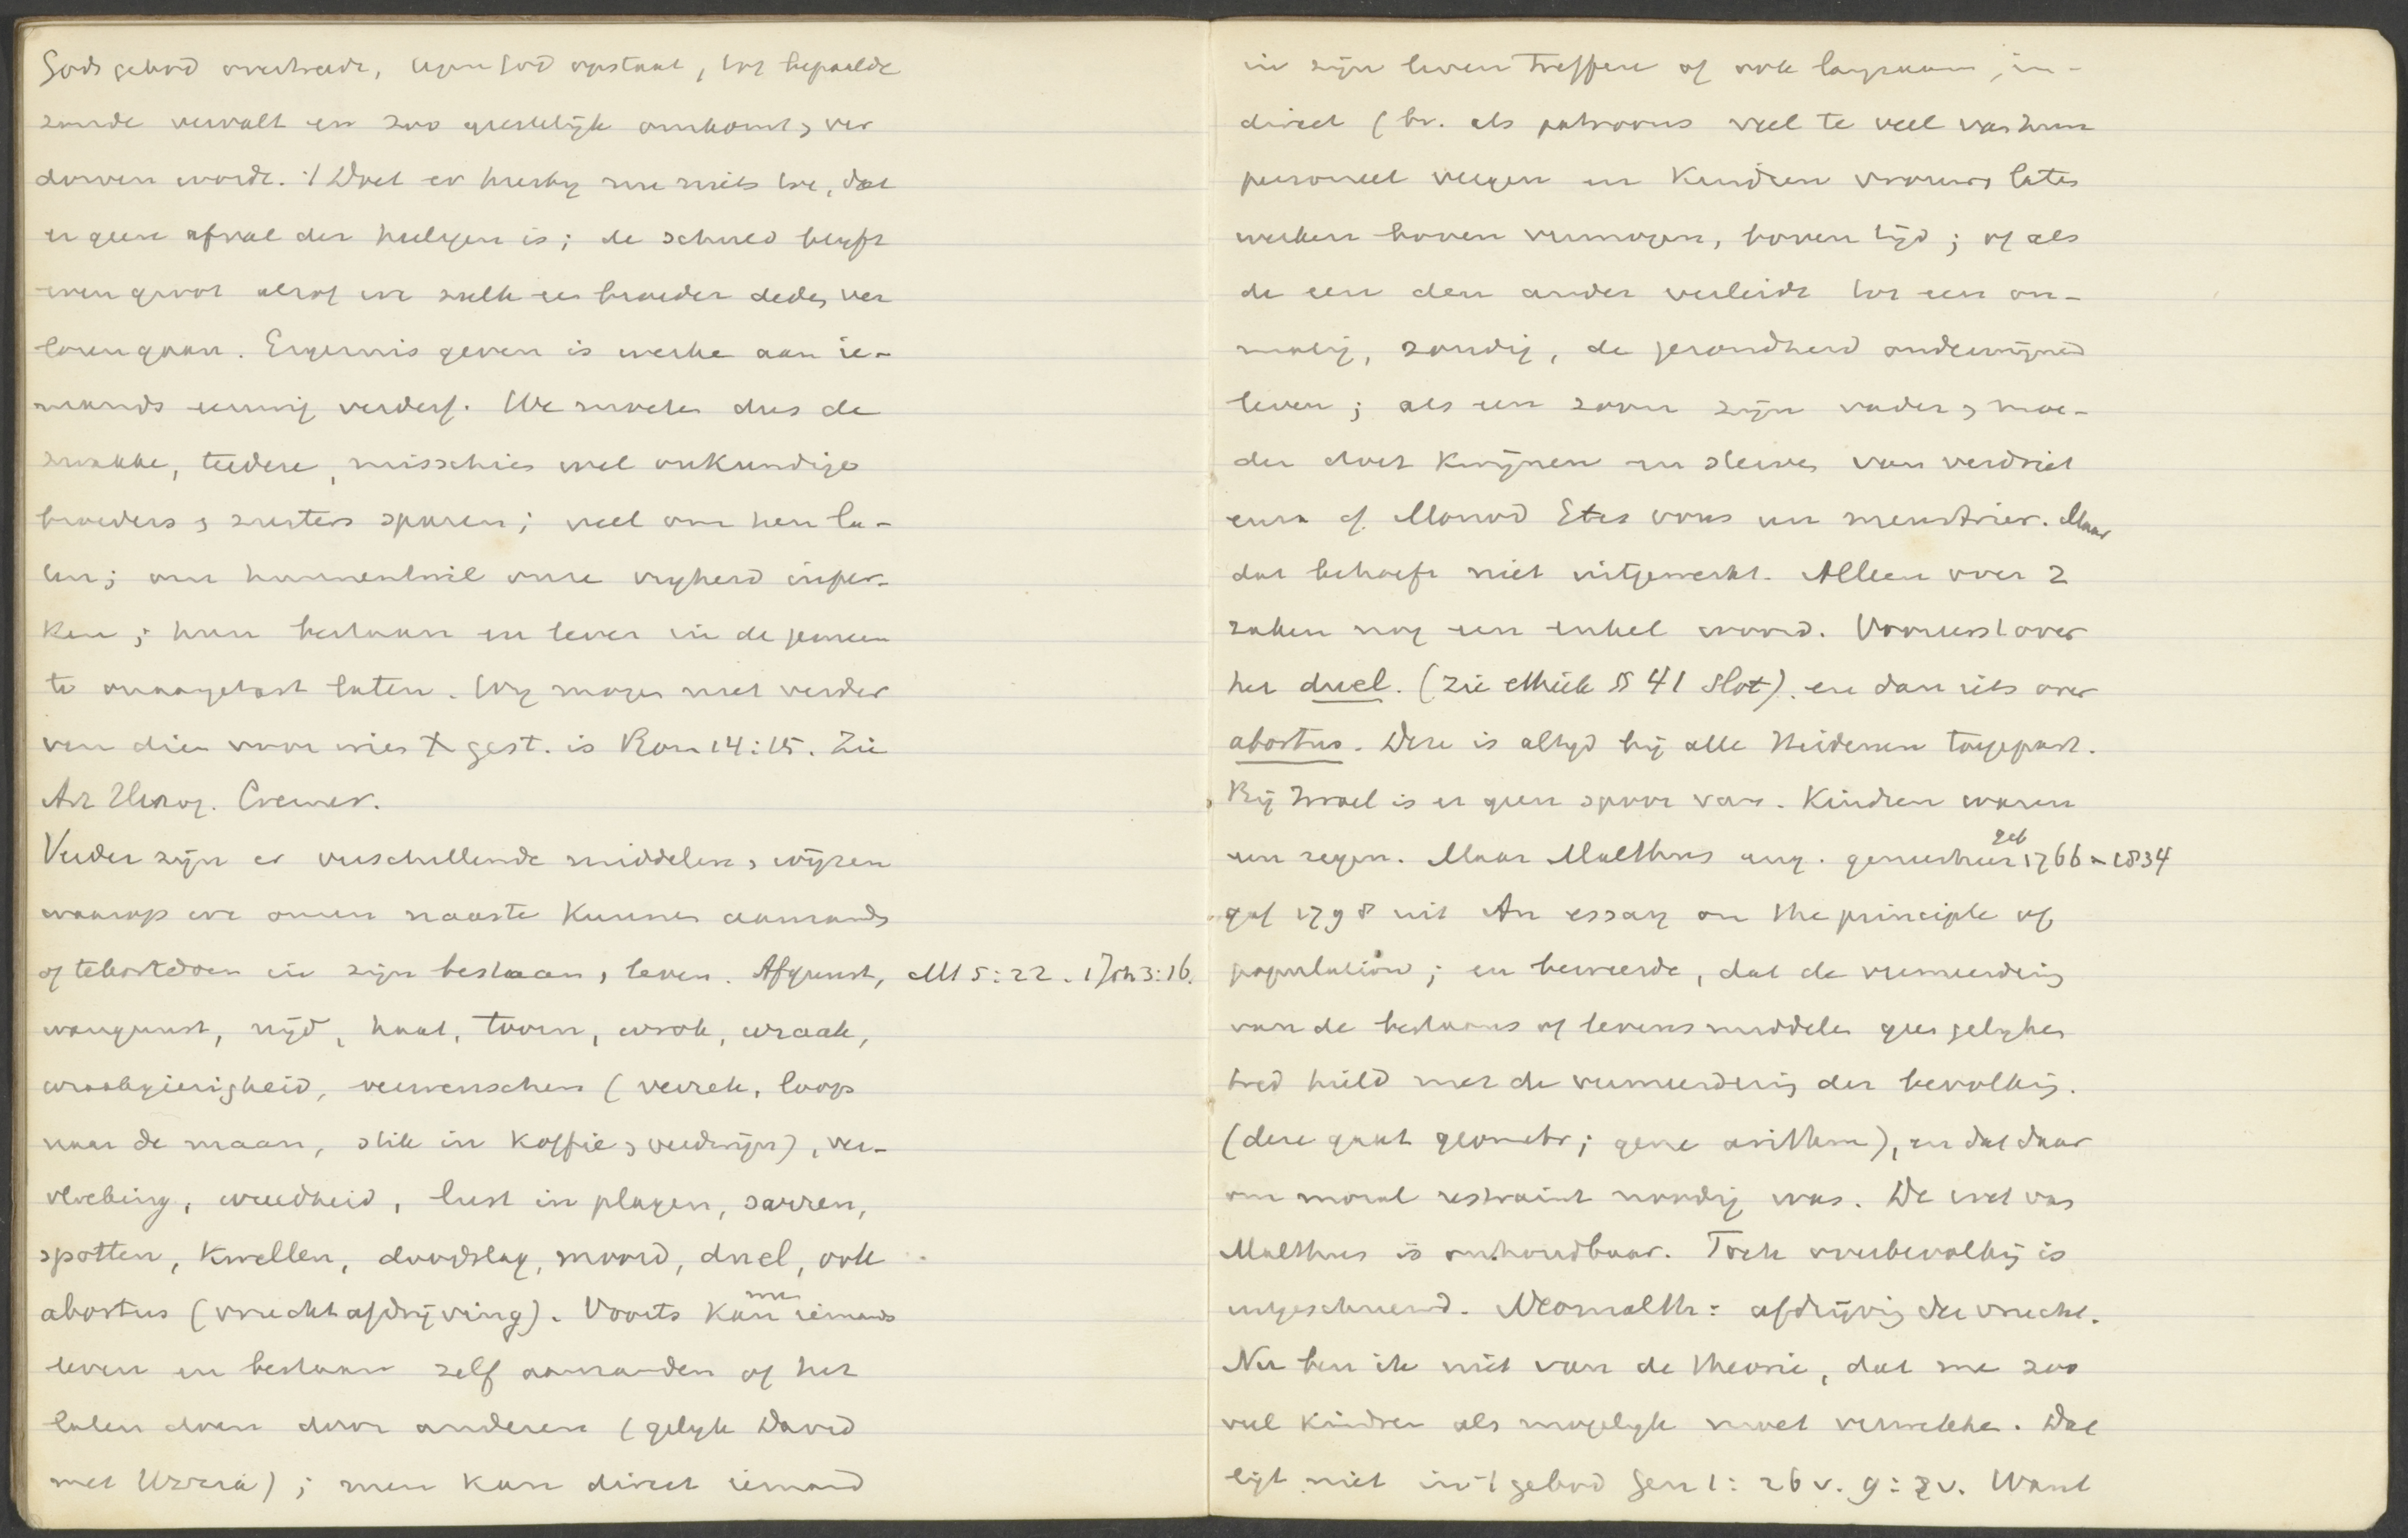 Gods gebod overtreedt, tegen God opstaat, tot bepaalde
zonde vervalt en zoo geestelijk omkomt, ver
dorven wordt. 't Doet er hierby nu niets toe, dat
er geen afval der heiligen is; de schuld blyft
even groot alsof we zulk een broeder deden ver
loren gaan. Ergernis geven is werken aan ie-
mands eeuwig verderf. We moeten dus de
zwakke, teedere, misschien wel onkundige
broeders, zusters sparen; veel om hen la-
ten; om hunnentwil onze vryheid inper-
ken; hun bestaan en leven in de gemeen
te onaangetast laten. Wy mogen niet verder
ven dien voor wien X gest. is Rom 14:15. Zie
Art Herzog. Cremer.
Verder zijn er verschillende middelen, wijzen
waarop we onzen naaste kunnen aanranden
of tekortdoen in zijn bestaan, leven. Afgunst, Mt 5:22. 1 Joh 3:16.
wangunst, nijd, haat, toorn, wrok, wraak,
wraakgierigheid, verwenschen (verrek, loop
naar de maan, stik in koffie, verdwijn), ver-
vloeking, wreedheid, lust in plagen, sarren,
spotten, kwellen, doodslag, moord, duel, ook
abortus (vruchtafdrijving). Voorts kan men iemands
leven en bestaan zelf aanranden of het
laten doen door anderen (gelyk David
met Uzzia); men kan direct iemand
in zijn leven treffen of ook langzaam, in-
direct (bv. als patroons veel te veel van hun
personeel vergen en kinderen vrouwen laten
werken boven vermogen, boven tijd; of als
de een den ander verleidt tot een on-
matig, zondig, de gezondheid ondermijnend
leven; als een zoon zijn vader, moe-
der doet kwijnen en sterven van verdriet
enz. cf. Monod Etes vous un meurtrier. Maar
dat behoeft niet uitgewerkt. Alleen over 2
zaken nog een enkel woord. Vooreerst over
het duel. (Zie ethiek § 41 slot). en dan iets over
abortus. Deze is altyd bij alle Heidenen toegepast.
Bij Israel is er geen spoor van. Kinderen waren
een zegen. Maar Malthus eng. geneesheer geb 1766-1834
gaf 1798 uit An essay on the principle of
population; en beweerde, dat de vermeerdering
van de bestaans of levensmiddelen geen gelyken
tred hield met de vermeerdering der bevolking.
(deze gaat geometr; gene arithm), en dat daar
om moral restraint noodig was. De wet van
Malthus is onhoudbaar. Toch overbevolking is
uitgeschreeuwd. Neomalth: afdrijving der vrucht.
Nu ben ik niet van de theorie, dat men zoo
veel kinderen als mogelyk moet verwekken. Dat
ligt niet in 't gebod Gen 1:26 v. 9:2 v. Want